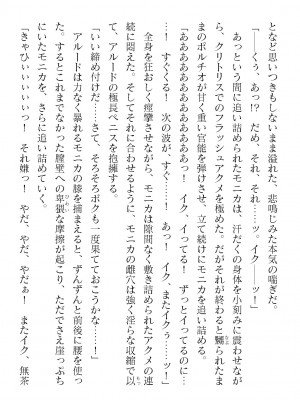 となど思いつきもしないまま溢れた、悲鳴じみた本気の喘ぎだ。
「――くぅ、あっ!?　だめ、それ、それ……ッ。イクーーッ！
あっという間に追い詰められたモニカは、汗だくの身体を小刻みに震わせなが
ら、クリトリスでのフラッシュアクメを極めた。だがそれが終わると嬲られたま
まのポルチオが甘く重い官能を弾けさせ、立て続けにモニカを追い詰める。
「あああああああああっ！　イク、イってる！　ずっとイってるのに…
…！　すぐくる！　次の波が、すぐ……！　あっ！　イク、またイクぅ――ッ！」
全身を狂おしく痙攣させながら、モニカは隙間なく敷き詰められたアクメの連
続に悶えた。そしてそれに合わせるように、モニカの雌穴は強く淫らな収縮で以
て、アルードの極長ペニスを抱擁する。
「いい締め付けだ……さて、そろそろボクも一度果てておこうかな……！」
アルードは力なく暴れるモニカの膝を捕まえると、ずんずんと前後に腰を使っ
た。するとこれまでなかった膣壁への卑猥な摩擦が起こり、ただでさえ崖っぷち
にいたモニカを、さらに追い詰めていく。
「きゃひぃぃぃぃっ！　それ嫌っ！　やだ、やだ、やだぁ！　またイク、無茶